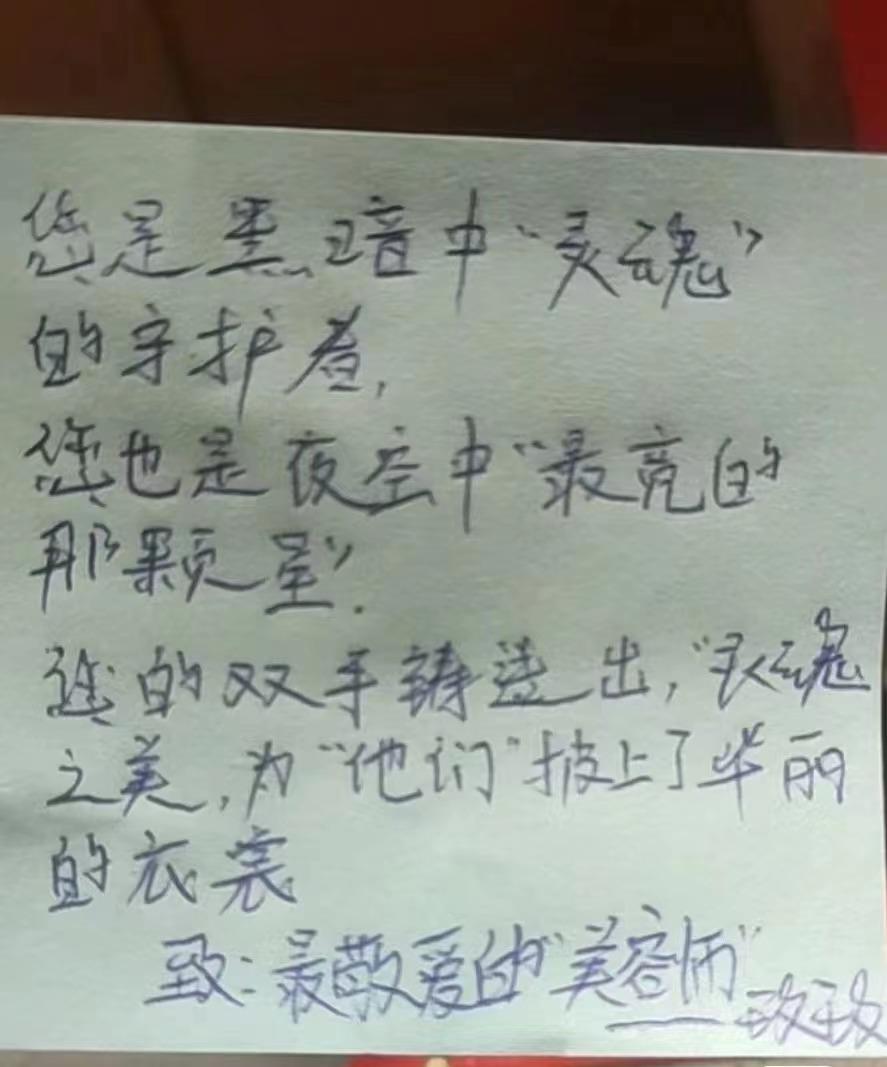 您是黑暗中“灵魂”
的守护者,
您也是夜空中“最亮的
那颗星”.
您的双手铸造出,“灵魂
之美,为“他们”披上了华丽
的衣裳
致:最敬爱的“美容师”
——玫玫